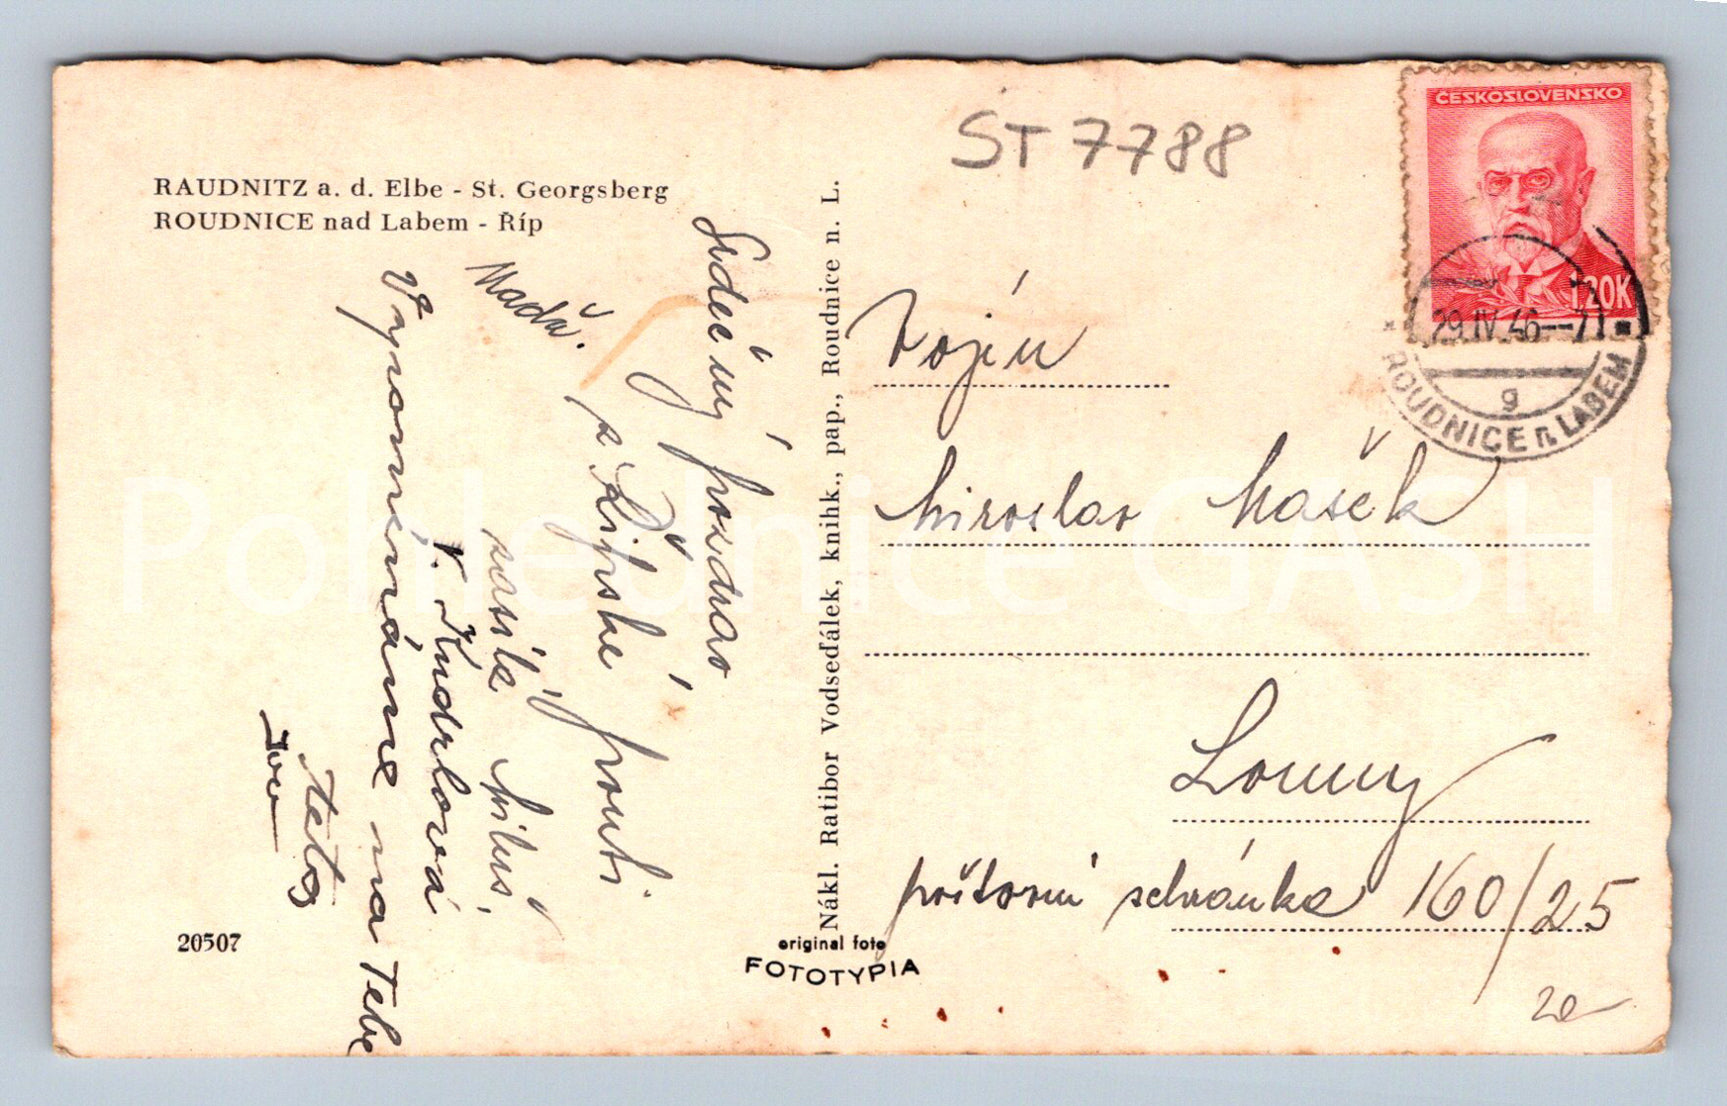 RAUDNITZ a. d. Elbe - St. Georgsberg
ROUDNICE nad Labem - Říp
ST 7788
ČESKOSLOVENSKO
1,20K
29.IV.46--7
g
ROUDNICE n. LABEM
Srdečný pozdrav
z Řípské pouti.
zasílá
V. Kudrlová
Vzpomínáme na Tebe
teta
Nákl. Ratibor Vodseďálek, knihk., pap., Roudnice n. L.
Vojín
Miroslav Mašek
Louny
poštovní schránka 160/25
20507
original foto
FOTOTYPIA
Pohlednice GASH